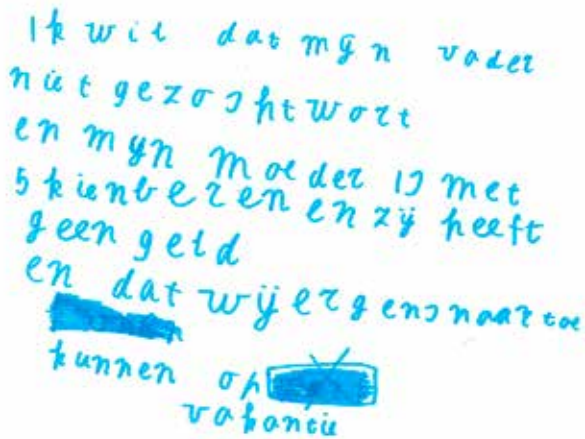 Ik wil dat mijn vader
niet gezoshtwort
en mijn moeder is met
5 kienberen en zij heeft
geen geld
en dat wij ergensnaar toe
kunnen op
vakantie